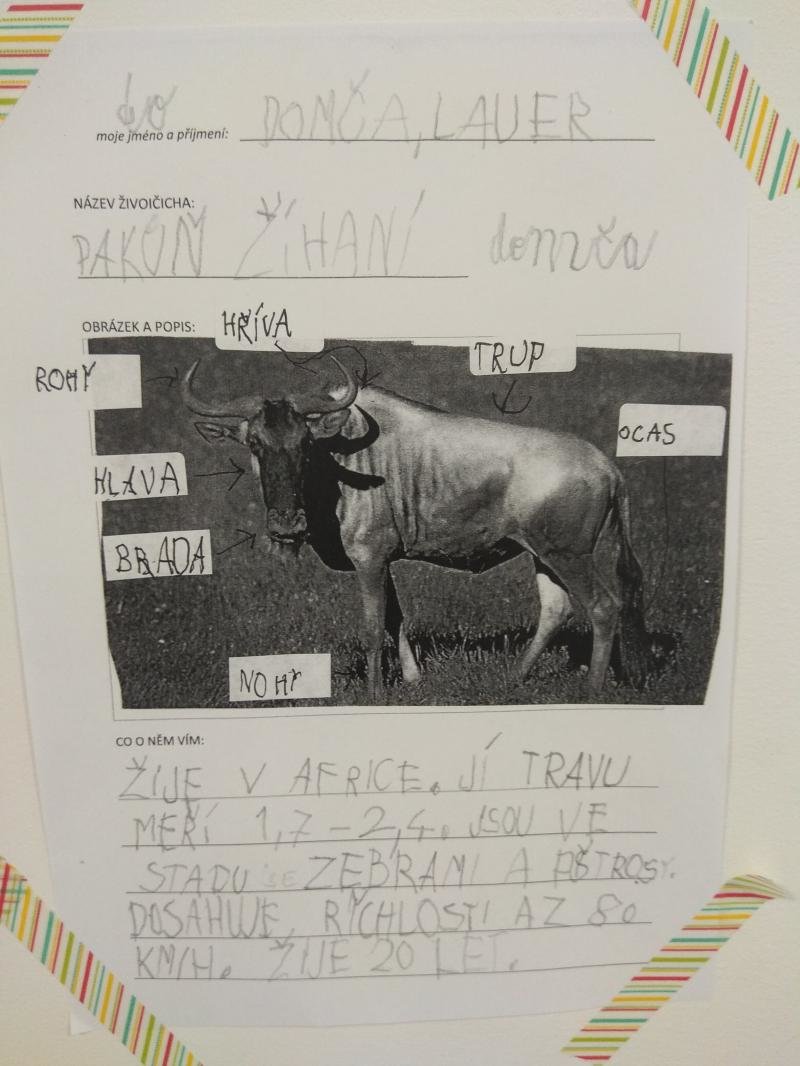 do
moje jméno a příjmení: DOMČA, LAUER
NÁZEV ŽIVOIČICHA:
PAKŮŇ ŽÍHANÍ domča
OBRÁZEK A POPIS:
HŘÍVA
TRUP
ROHY
OCAS
HLAVA
BRADA
NOHY
CO O NĚM VÍM:
ŽIJE V AFRICE. JÍ TRAVU
MEŘÍ 1,7-2,4. JSOU VE
STADU SE ZEBRAMI A PŠTROSY.
DOSAHUJE, RYCHLOSTI AZ 80
KM/H. ŽIJE 20 LET.